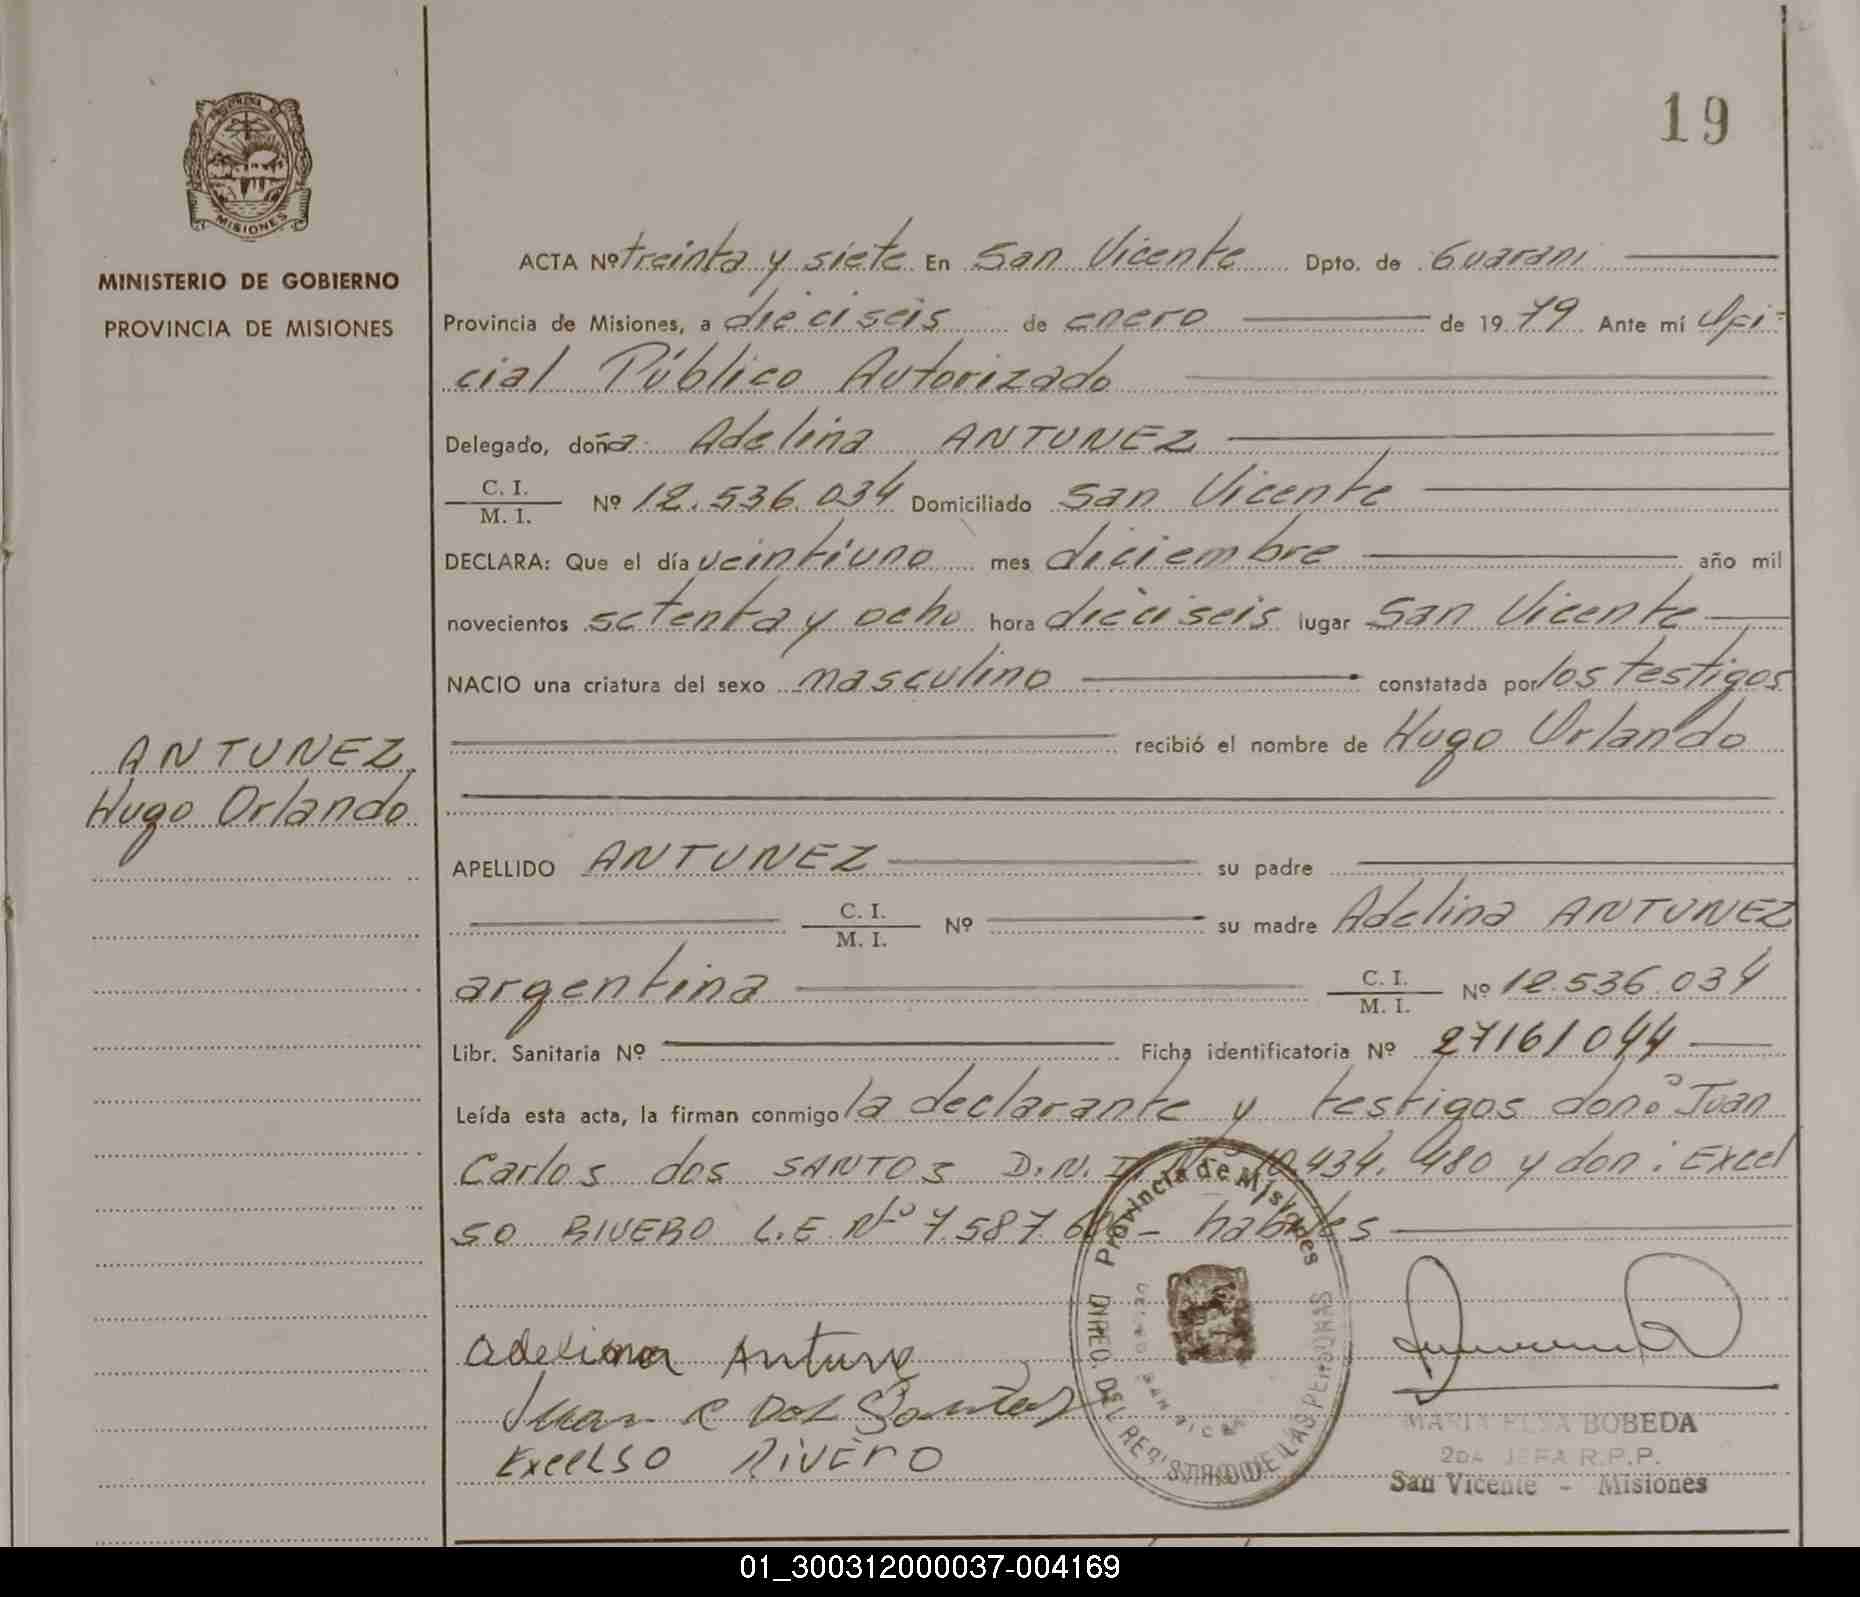 19
MISIONES
MINISTERIO DE GOBIERNO
PROVINCIA DE MISIONES
ACTA Nº treinta y siete En San Vicente Dpto. de Guarani
Provincia de Misiones, a dieciseis de enero de 1979 Ante mí Ofi-
cial Público Autorizado
Delegado, doña: Adelina ANTUNEZ
C. I.
M. I. Nº 12.536.034 Domiciliado San Vicente
DECLARA: Que el día veintiuno mes diciembre año mil
novecientos setenta y ocho hora dieciseis lugar San Vicente
NACIO una criatura del sexo masculino constatada por los testigos
recibió el nombre de Hugo Orlando
ANTUNEZ
Hugo Orlando
APELLIDO ANTUNEZ su padre
C. I.
M. I. Nº su madre Adelina ANTUNEZ
argentina C. I.
M. I. Nº 12.536.034
Libr. Sanitaria Nº Ficha identificatoria Nº 27161044
Leída esta acta, la firman conmigo la declarante y testigos don: Juan
Carlos dos SANTOS D.N.I. Nº 10.434.480 y don: Excel
so RIVERO L.E Nº 7.587. - habiles
Provincia de Misiones
DIREC. DEL REGISTRO DE LAS PERSONAS
Adelina Antune
Juan C Dos Santos
Excelso Rivero
MARIA ELSA BOBEDA
2DA JEFA R.P.P.
San Vicente - Misiones
01_300312000037-004169